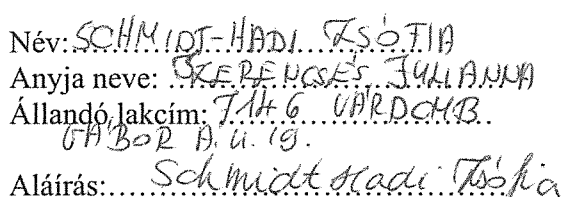 Név: SCHMIDT-HADI ZSÓFIA
Anyja neve: SZERENCSÉS JULIANNA
Állandó lakcím: 7146 VÁRDOMB
GÁBOR Á. u. 19.
Aláírás: Schmidt Hadi Zsófia